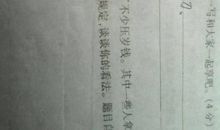 写和大家一起享吧。（4分）
不少压岁钱。其中一些人拿
规定，谈谈你的看法。题目自